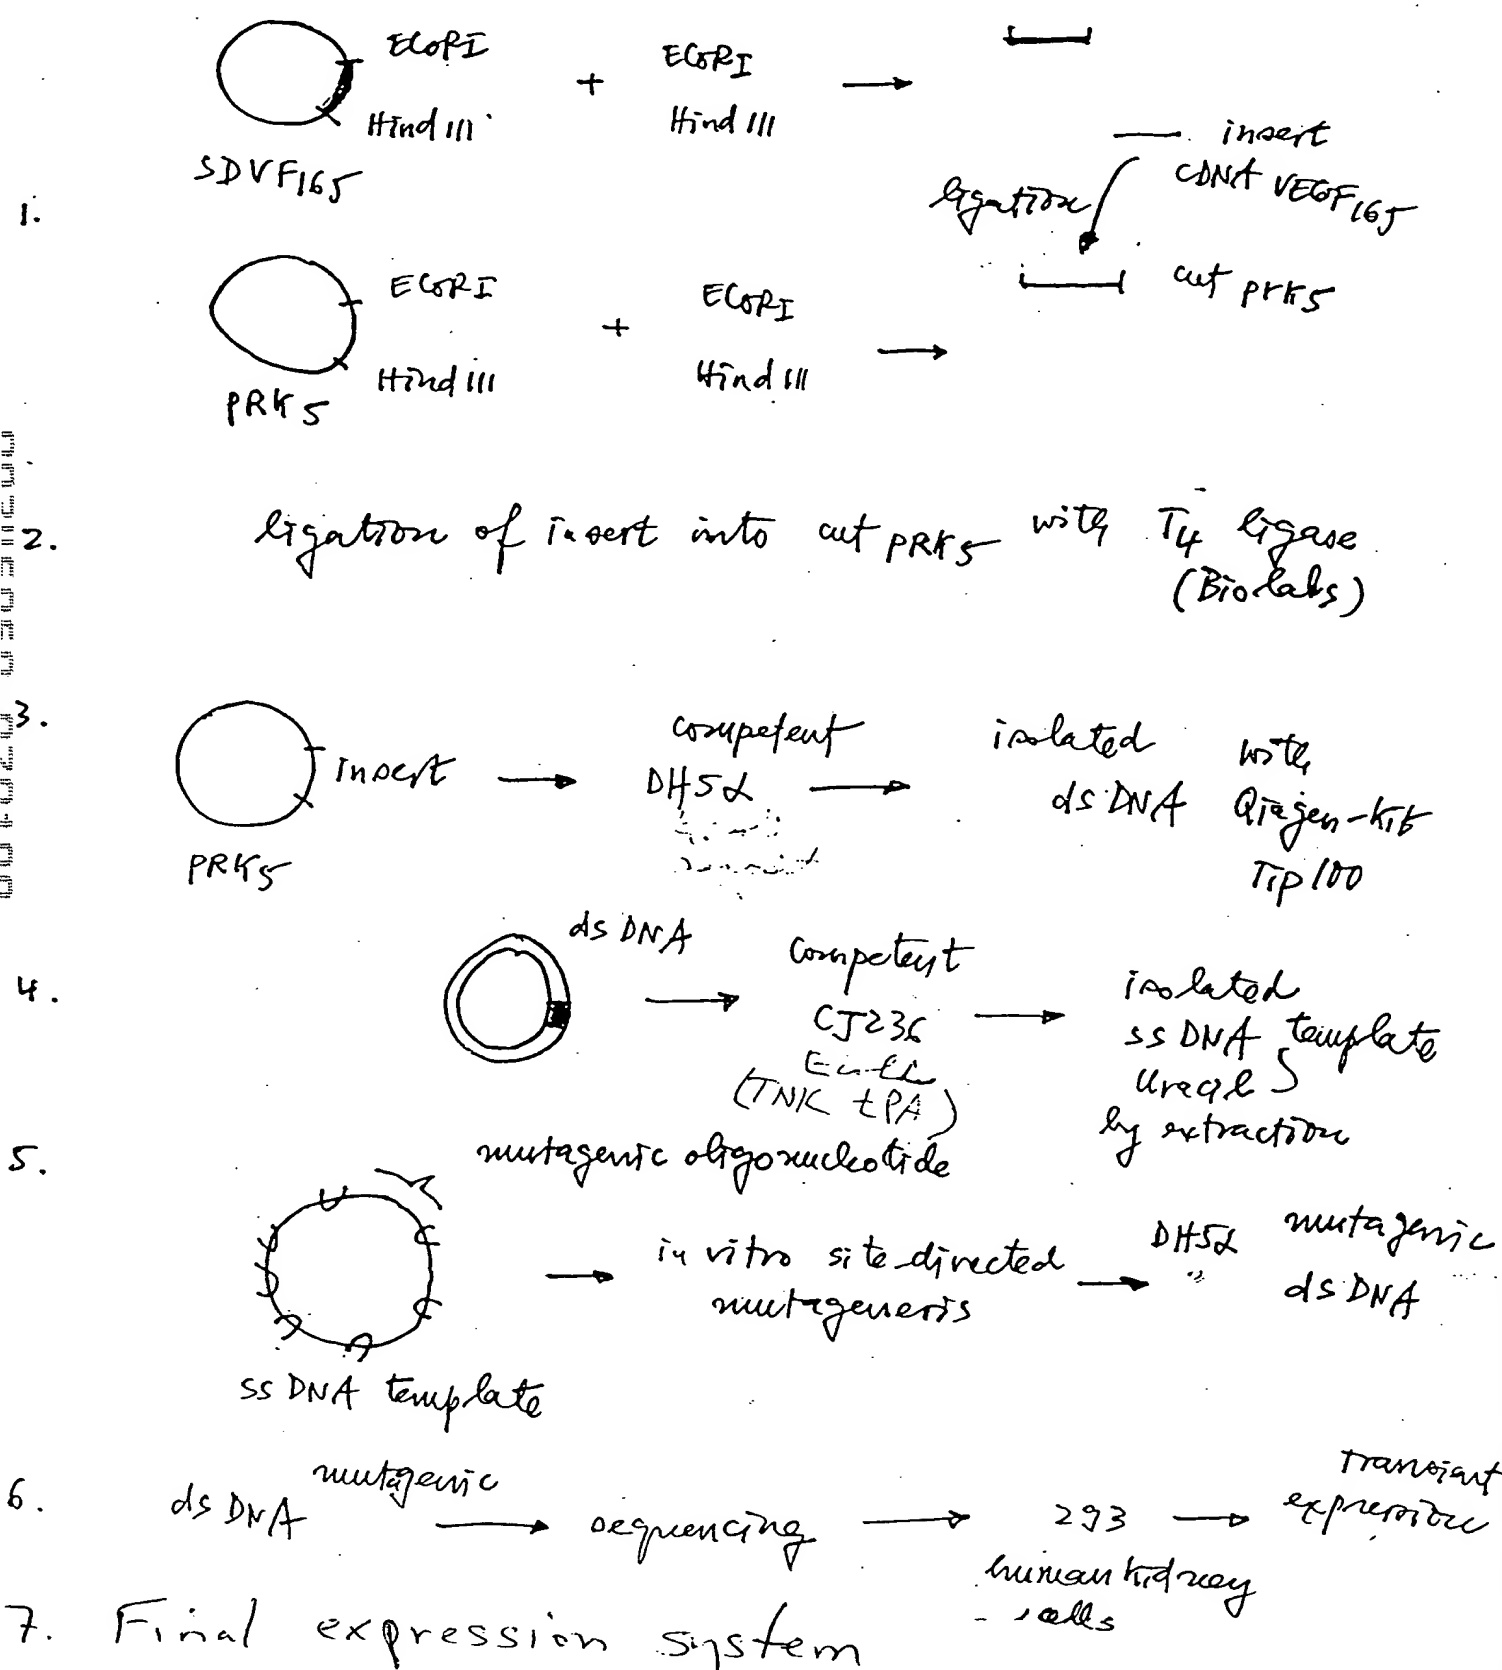 EcoRI
Hind III
SDVF165
+
EcoRI
Hind III
insert
cDNA VEGF165
ligation
1.
EcoRI
Hind III
PRK5
+
EcoRI
Hind III
cut PRK5
2. ligation of insert into cut PRK5 with T4 ligase
(Biolabs)
3.
insert
PRK5
competent
DH5α
isolated
ds DNA
with
Qiagen-Kit
Tip 100
4.
ds DNA
competent
CJ236
(TNK tPA)
isolated
ss DNA template
Uracil
by extraction
5.
mutagenic oligonucleotide
ss DNA template
in vitro site-directed
mutagenesis
DH5α
mutagenic
ds DNA
6.
ds DNA mutagenic
sequencing
293
human kidney
cells
transient
expression
7. Final expression system